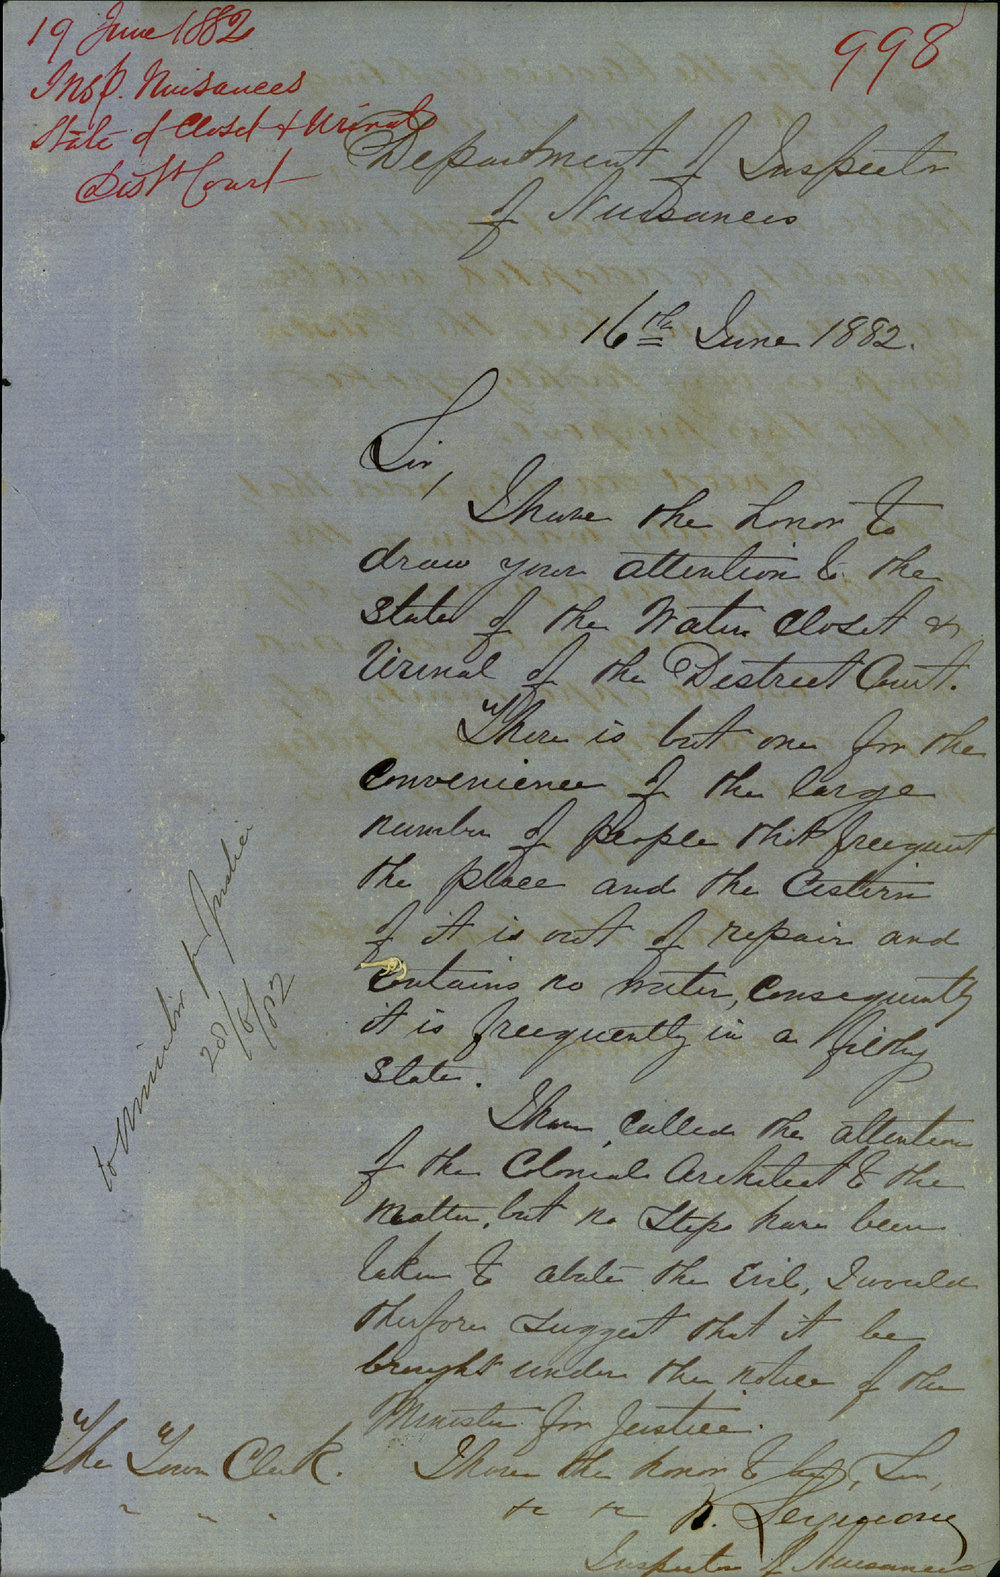 19 June 1882
Insp. Nuisances
State of Closet & Urinal
Distt Court
998
Department of Inspector
of Nuisances
16th June 1882.
Sir,
I have the honor to
draw your attention to the
state of the Water Closet &
Urinal of the District Court.
There is but one for the
convenience of the large
number of people that frequent
the place and the Cistern
of it is out of repair and
contains no water, consequently
it is frequently in a filthy
state.
I have called the attention
of the Colonial Architect to the
matter, but no steps have been
taken to abate the Evil, I would
therefore suggest that it be
brought under the notice of the
Minister for Justice.
I have the honor to be, Sir,
&c &c R. Seymour
Inspector of Nuisances
The Town Clerk.
to Minister for Justice
20/6/82